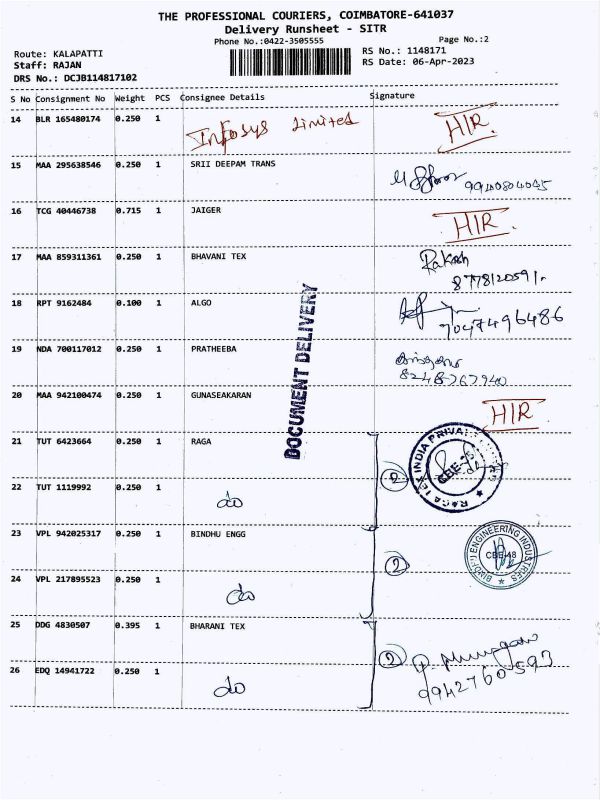 THE PROFESSIONAL COURIERS, COIMBATORE-641037
Delivery Runsheet - SITR
Phone No.:0422-3505555 Page No.:2
Route: KALAPATTI RS No.: 1148171
Staff: RAJAN RS Date: 06-Apr-2023
DRS No.: DCJB114817102
S No Consignment No Weight PCS Consignee Details Signature
14 BLR 165480174 0.250 1 Infosys Limited HIR.
15 MAA 295638546 0.250 1 SRII DEEPAM TRANS 9940804045
16 TCG 40446738 0.715 1 JAIGER HIR.
17 MAA 859311361 0.250 1 BHAVANI TEX Rakesh
8778120591
18 RPT 9162484 0.100 1 ALGO
7047496486
DOCUMENT DELIVERY
19 NDA 700117012 0.250 1 PRATHEEBA
8248767940
20 MAA 942100474 0.250 1 GUNASEAKARAN HIR.
21 TUT 6423664 0.250 1 RAGA
RAGA TEX INDIA PRIVATE LIMITED
CBE-35
22 TUT 1119992 0.250 1 do 2
23 VPL 942025317 0.250 1 BINDHU ENGG
BINDHU ENGINEERING INDUSTRIES
CBE-48
24 VPL 217895523 0.250 1 do 2
25 DDG 4830507 0.395 1 BHARANI TEX 2
26 EDQ 14941722 0.250 1 do 9942760593